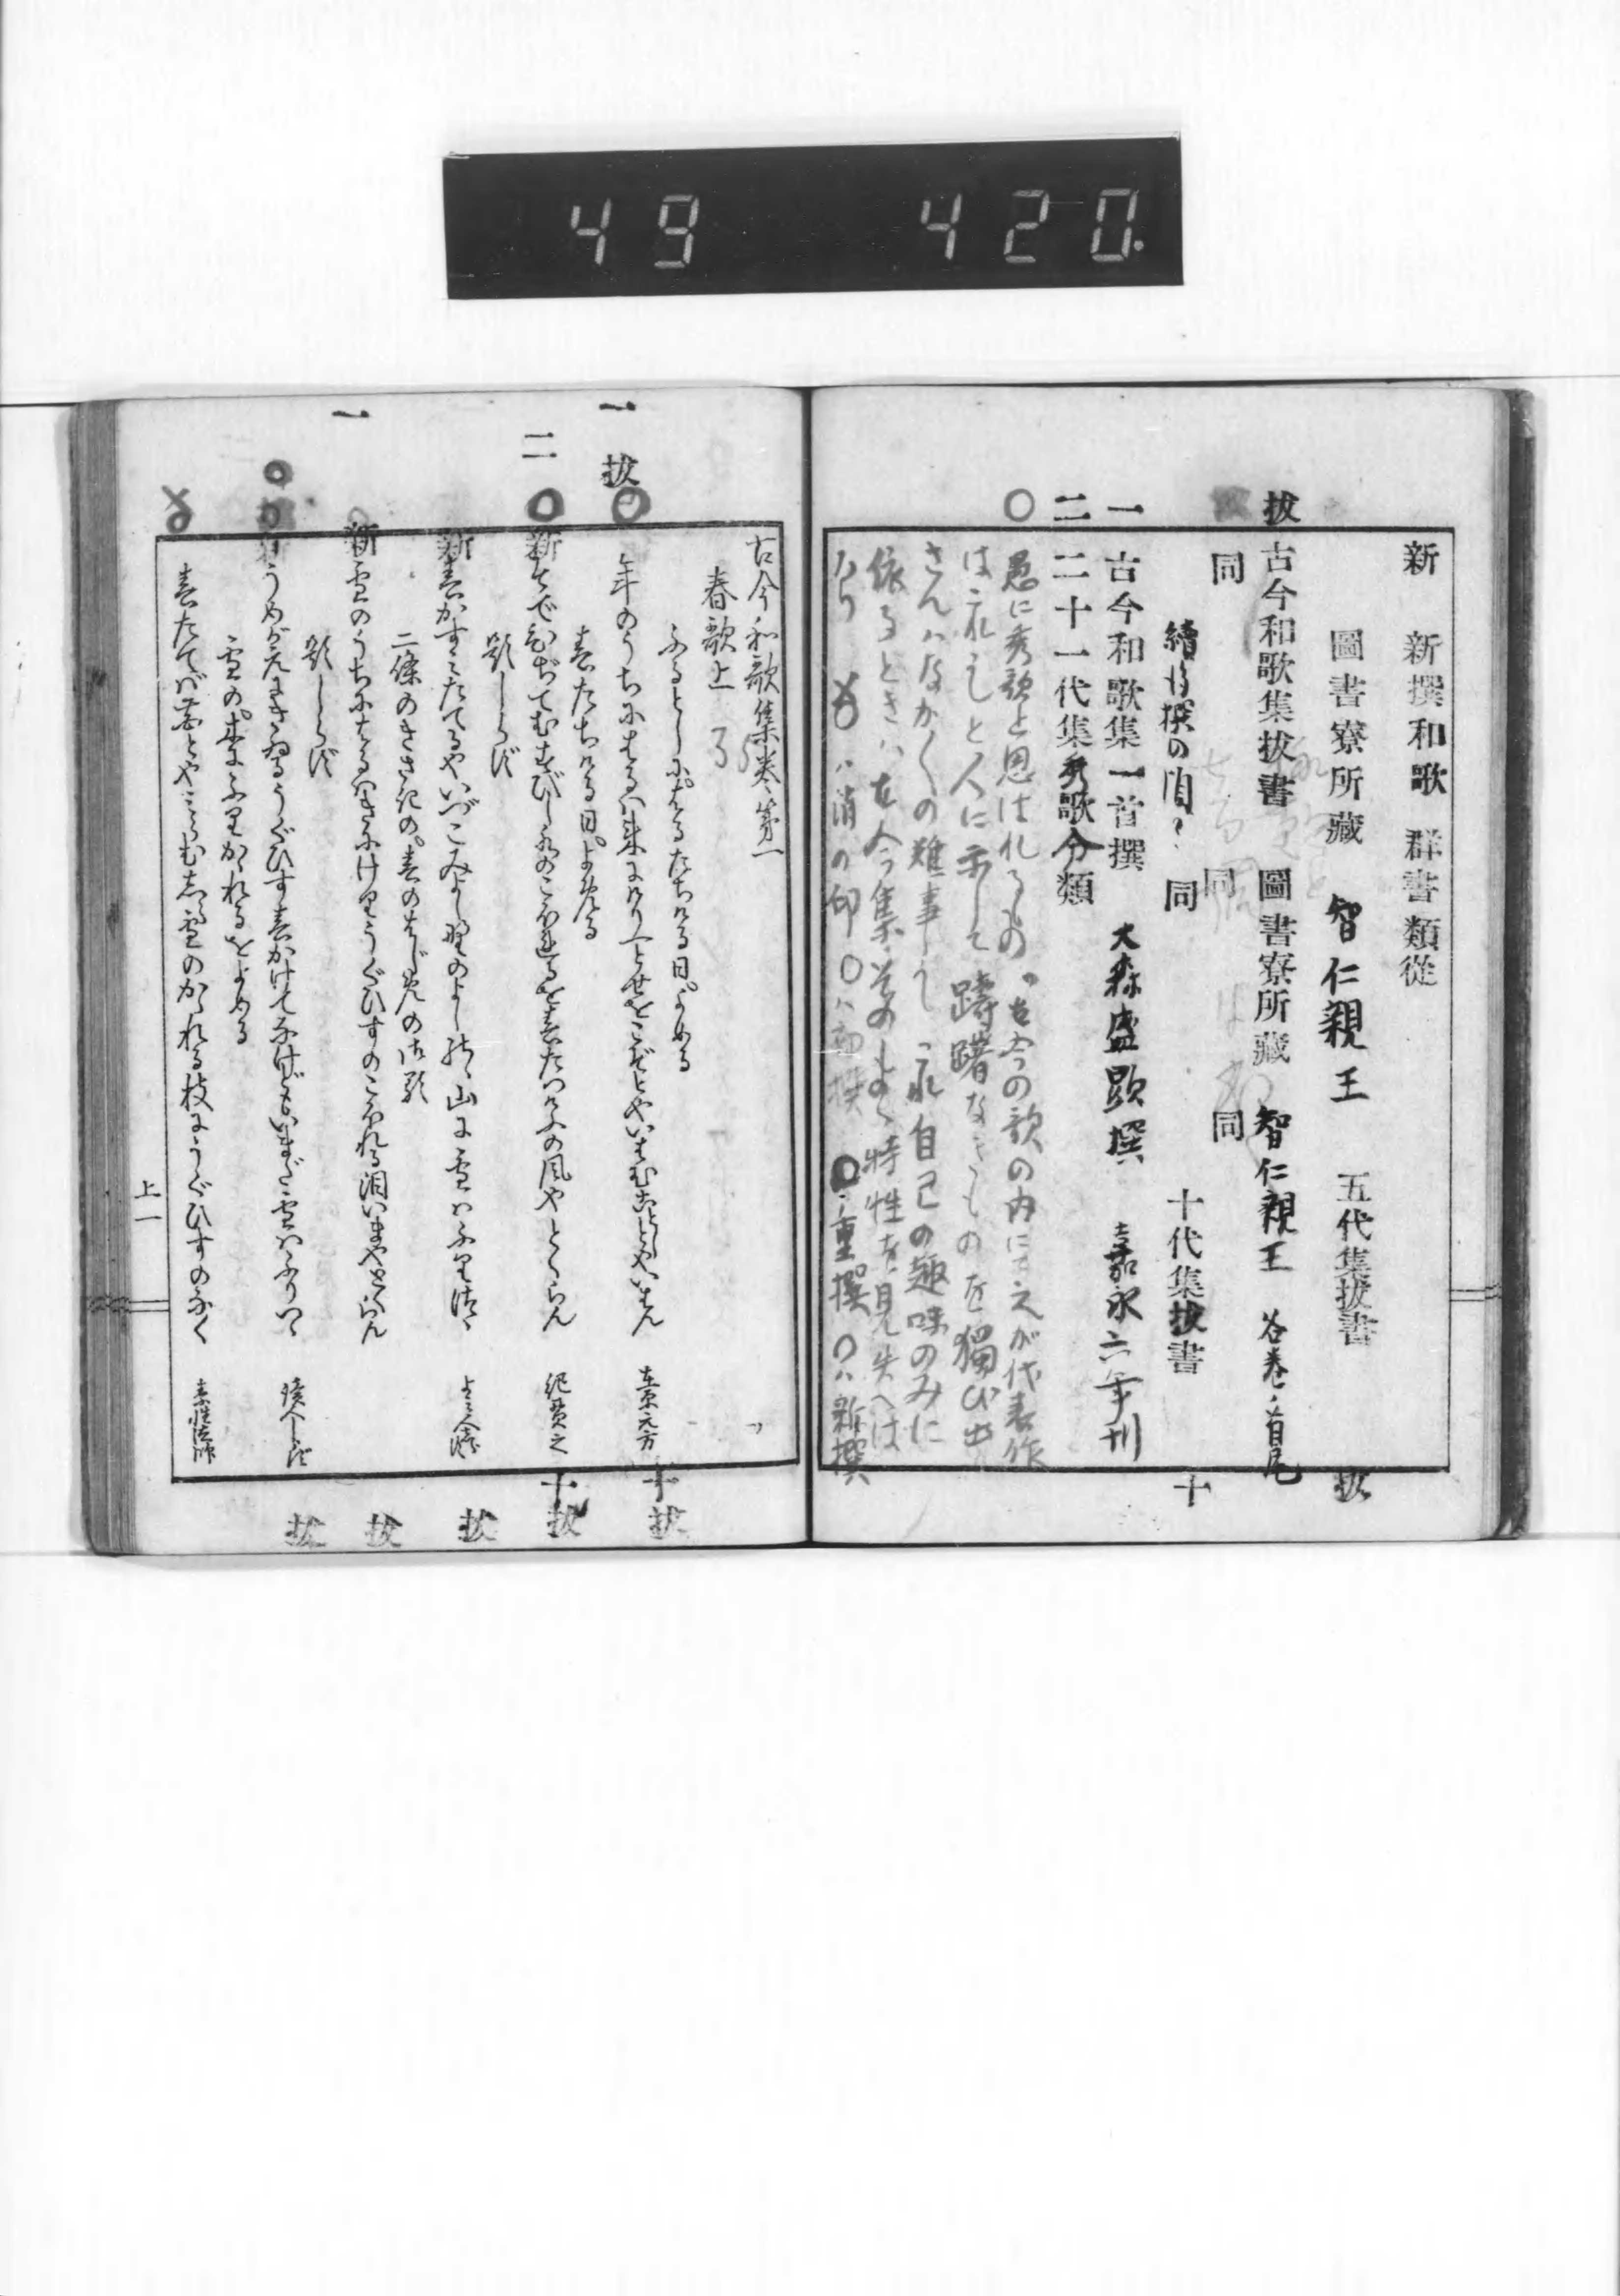 49 420.
新 新撰和歌 群書類從
圖書寮所藏 智仁親王 五代集拔書 拔
拔 古今和歌集拔書 圖書寮所藏 智仁親王 各卷ノ首尾
同 同 同
同 十代集拔書 十
一 古今和歌集一首撰 大森盛顕撰 嘉永六年刊
二 二十一代集秀歌分類
〇 愚に秀歌と思はれるもの、古今の歌の内にて之が代表作
は之れ也と人に示して躊躇なきものを獨び出
さんハなかくの難事して、之れ自己の趣味のみに
依るときハ古今集其のものゝ特性を見失へは
なり ハ消の印 〇ハ初撰 〇ハ重撰 〇ハ新撰
古今和歌集卷第一
春歌上
ふるとしに。はるたちける日。よめる
一 拔 〇 年のうちにはるは来にけりひとせをこぞとやいはむことしとやいはん 在原元方 十 拔
春たちける日。よめる
二 〇 新 袖ひぢてむすびし水のこほれるを春たつけふの風やとくらん 紀貫之 十 拔
題しらず
新 春がすみたてるやいづこみよし野のよしのゝ山に雪はふりつゝ よみ人しらず 拔
二條のきさきの。春のはじめの御歌
一 新 雪のうちにはるはきにけりうぐひすのこほれる泪いまやとくらん 拔
題しらず
〇 うめがえにきゐるうぐひす春かけてなけどもいまだ雪はふりつゝ 読人しらず 拔
雪の。木にふりかゝれるをよめる
春たてば花とやみらむ白雪のかゝれる枝にうぐひすのなく 素性法師
上一